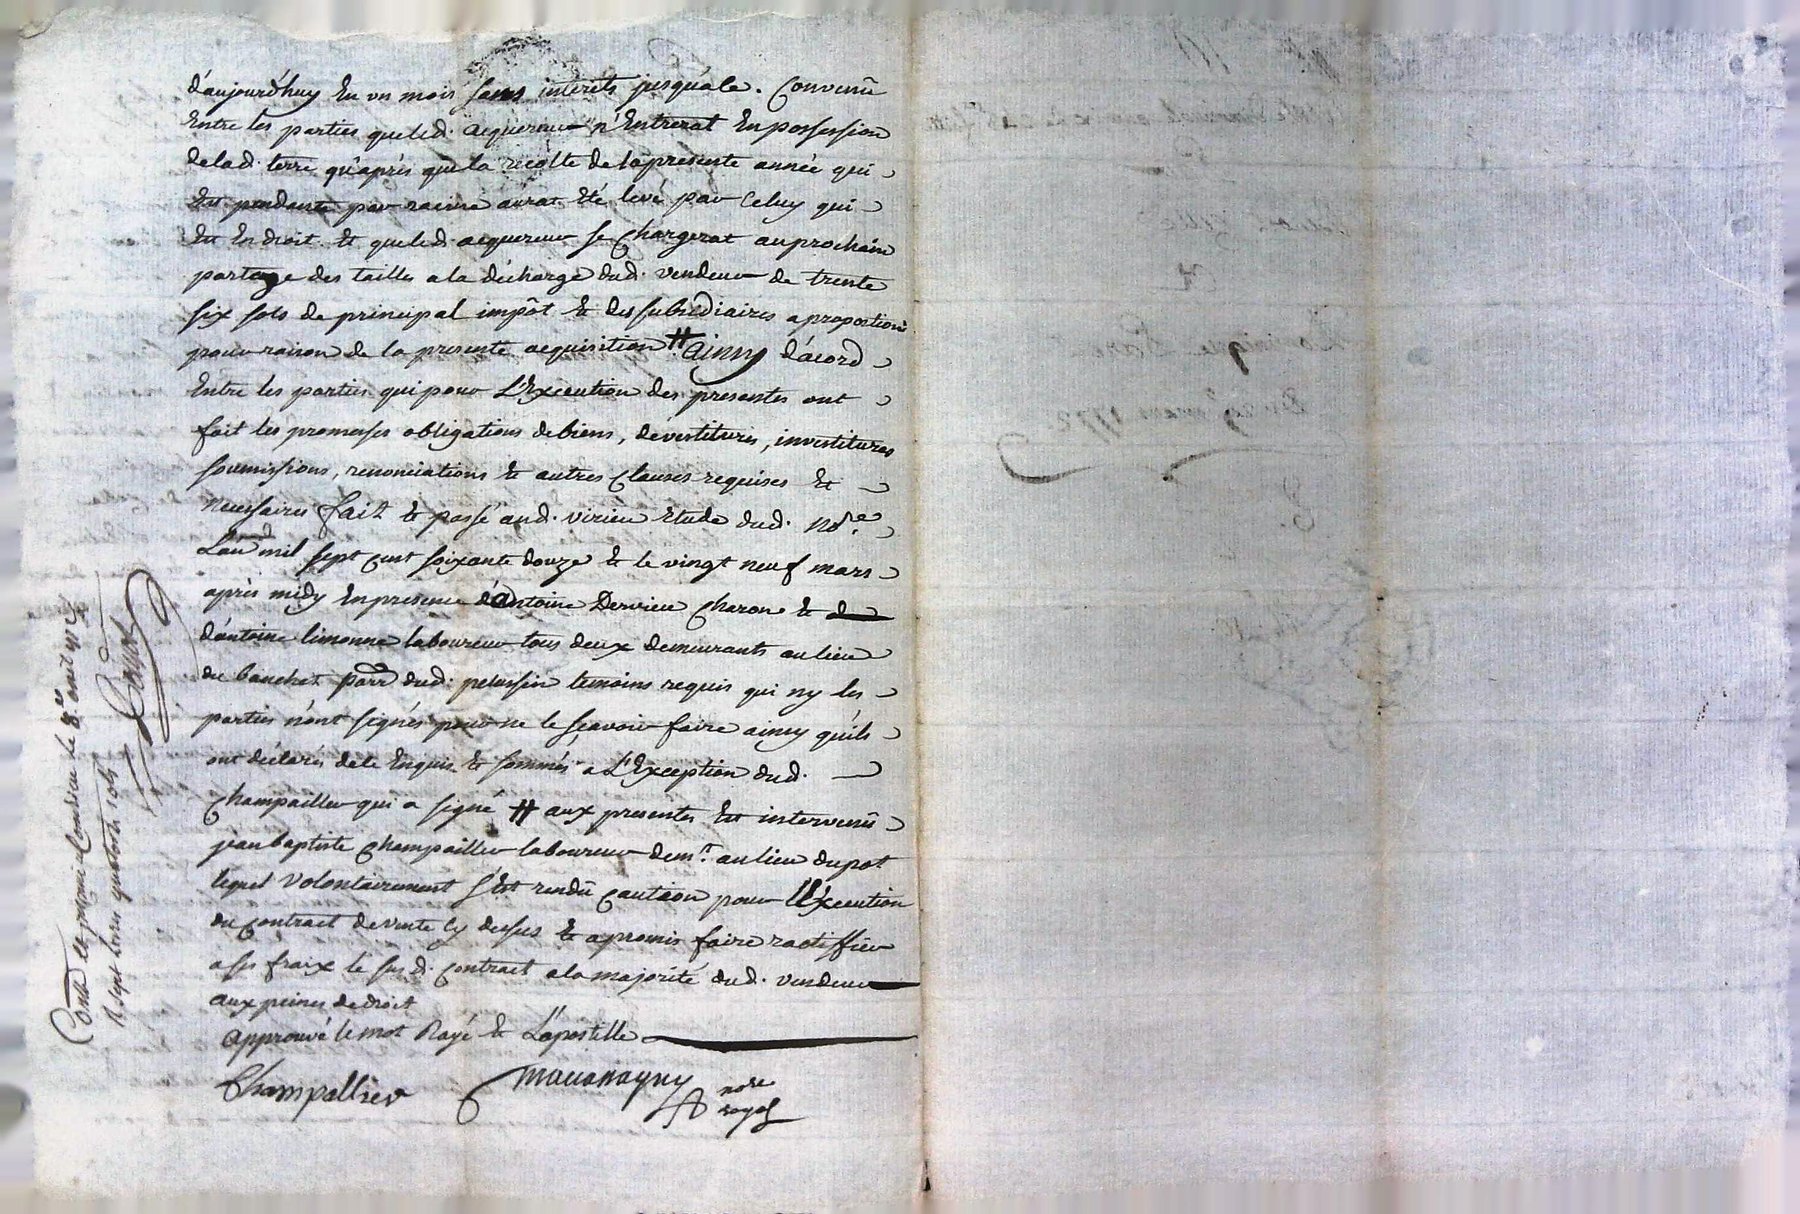 d'aujourd'huy En un mois sans interêts jusqu'ale. Convenû
Entre les parties queled. acquereur n'Entrerat En possession
delad. terre qu'aprés que la recolte de la presente année qui
Est pendante par racine aurat Eté levé par Celuy qui
Est En droit. Et queled. acquereur se Chargerat au prochain
partage des tailles a la décharge dud. vendeur de trente
six sols de principal impôt Et des subsidiaires a proportion
pour raison de la presente acquisition # ainsy d'acord
Entre les parties qui pour L'Execution des presentes ont
fait les promesses obligations de biens, devestitures, investitures
soumissions, renonciations Et autres Clauses requises Et
necessaires fait Et passé aud. virieu Etude dud. nore
L'an mil sept cent soixante douze Et le vingt neuf mars
aprés midy En presence d'antoine Dervieu Charon Et de
d'antoine limonne laboureur tous deux demeurants au lieu
du banchet parr dud. pelussin temoins requis qui ny les
parties n'ont signés pour ne le sçavoir faire ainsy qu'ils
ont déclarés de ce Enquis Et sommés a L'Exception dud.
Champailler qui a signé # aux presentes Est intervenû
jean baptiste Champailler laboureur demt. au lieu du pot
lequel volontairement s'Est rendû caution pour l'Execution
du contract de vente Cy dessus Et a promis faire ractiffier
a ses fraix le susd. contract a la majorité dud. vendeur
aux peines de droit
approuvé le mot Rayé Et L'apostille
Champallier
nore
royal
Contlé
R sept livres quatorze sols